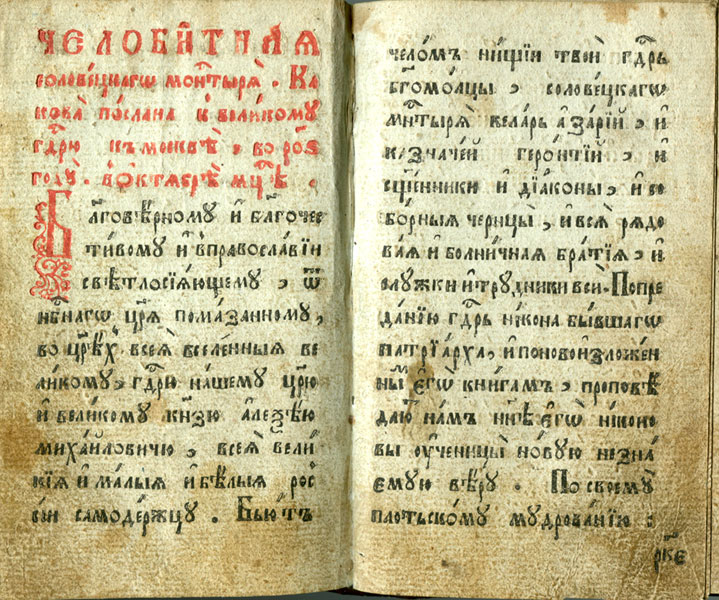 ЧЕЛОБИ́ТНАЯ
соловѣ́цкагѡ мон҇тыря̀. Ка
кова̀ по́слана к̾ вели́кому
гдⷭ҇рю къ москвѣ̀, во р҃ѻ҃ѕ
годꙋ̀. в̾ ѻктѧбрѣ̀ мцⷭ҇ѣ.
Бл҃говѣ́рному и҆ бл҃гочес
ти́вому и҆ в̾ православїи
свѣтлосїѧ́ющему, ѿ
нб҇нагѡ цр҃ѧ̀ пома́занному,
во цр҃ѣ́хъ всеѧ̀ вселе́нныѧ ве
ли́кому, гдⷭ҇рю на́шему цр҃ю̀
и҆ вели́кому кн҃зю а҆леѯѣ́ю
миха́йловичю, всеѧ̀ вели
кїѧ и҆ ма́лыѧ и҆ бѣ́лыѧ рос
сїи самоде́ржцу. Бью́тъ
чело́мъ ни́щїи твоѝ гдⷭ҇рь
бг҃омо́лцы, солове́цкагѡ
мн҇тырѧ̀ ке́ларь а҆за́рїй, и҆
казначе́й геро́нтїй, и҆
сщ҃е́нники и҆ дїа́коны, и҆ со
бо́рныѧ черицы̀, и҆ всѧ̀ рѧдо
ва́ѧ и҆ болни́чнаѧ бра́тїѧ, и҆
слу́жки и҆ тру́дники всѝ. По пре
да́нїю гдⷭ҇рь ни́кона бы́вшагѡ
патрїа́рха, и҆ по новоизложе́н
нымъ є҆гѡ̀ кни́гамъ, проповѣ́
даютъ на́мъ нн҃ѣ є҆гѡ̀ ни́коно
вы ѹ҆ченицы̀ но́вую незна́
емую вѣ́ру. По своемꙋ̀
пло́тьскому мудрова́нїю,
рк҃є